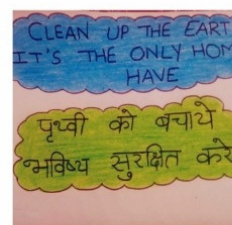 CLEAN UP THE EART
IT'S THE ONLY HOM
HAVE
पृथ्वी को बचाये
भविष्य सुरक्षित करे